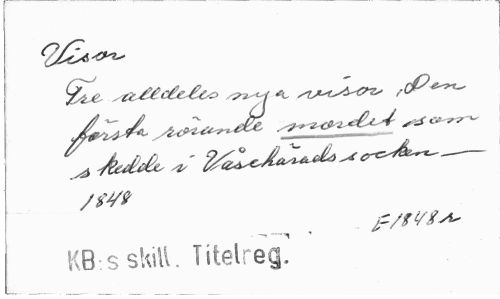 Visor
Tre alldeles nya visor, Den
första rörande mordet som
skedde i Våschärads socken —
1848
E1848r
KB:s skill. Titelreg.